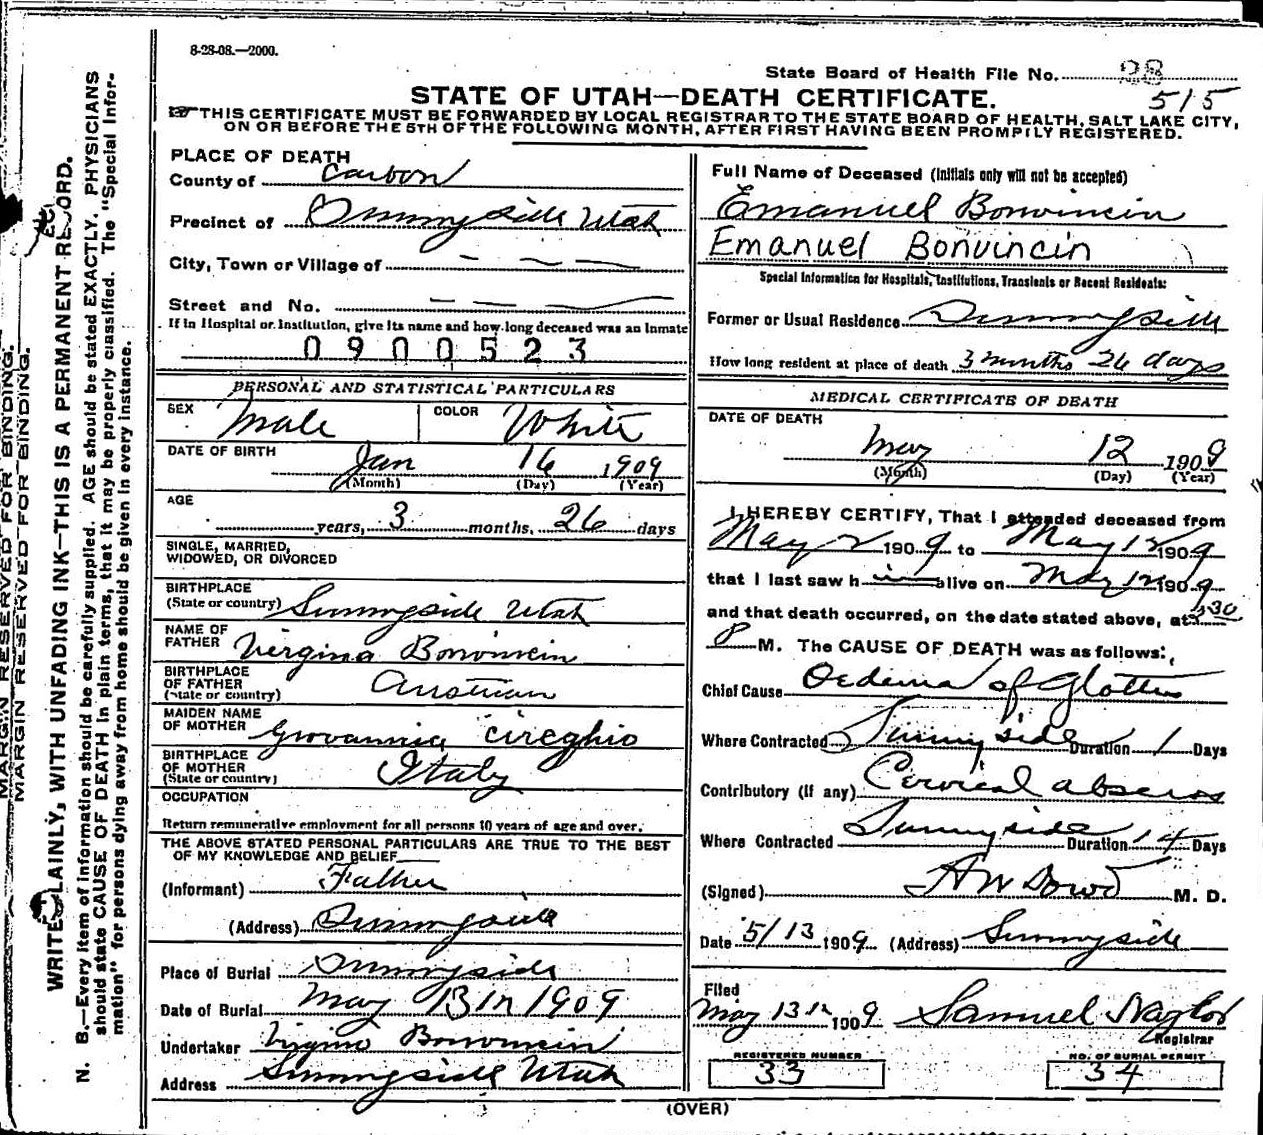 8-28-08.—2000.
State Board of Health File No. 98
515
STATE OF UTAH—DEATH CERTIFICATE.
THIS CERTIFICATE MUST BE FORWARDED BY LOCAL REGISTRAR TO THE STATE BOARD OF HEALTH, SALT LAKE CITY,
ON OR BEFORE THE 5TH OF THE FOLLOWING MONTH, AFTER FIRST HAVING BEEN PROMPILY REGISTERED.
MARGIN RESERVED FOR BINDING.
MARGIN RESERVED FOR BINDING.
WRITE PLAINLY, WITH UNFADING INK—THIS IS A PERMANENT RECORD.
N. B.—Every item of information should be carefully supplied. AGE should be stated EXACTLY. PHYSICIANS
should state CAUSE OF DEATH in plain terms, that it may be properly classified. The "Special Infor-
mation" for persons dying away from home should be given in every instance.
PLACE OF DEATH
County of Carbon
Precinct of Sunnyside Utah
City, Town or Village of — — —
Street and No. — — —
If in Hospital or Institution, give its name and how long deceased was an inmate
0900523
PERSONAL AND STATISTICAL PARTICULARS
SEX Male COLOR White
DATE OF BIRTH Jan 16 1909
(Month) (Day) (Year)
AGE
years, 3 months, 26 days
SINGLE, MARRIED,
WIDOWED, OR DIVORCED
BIRTHPLACE
(State or country) Sunnyside Utah
NAME OF
FATHER Virgina Bonvincin
BIRTHPLACE
OF FATHER Austrian
(State or country)
MAIDEN NAME
OF MOTHER Giovannia Cireghio
BIRTHPLACE
OF MOTHER Italy
(State or country)
OCCUPATION
Return remunerative employment for all persons 10 years of age and over.
THE ABOVE STATED PERSONAL PARTICULARS ARE TRUE TO THE BEST
OF MY KNOWLEDGE AND BELIEF
(Informant) Father
(Address) Sunnyside
Place of Burial Sunnyside
Date of Burial May 13th 1909
Undertaker Virgino Bonvincin
Address Sunnyside Utah
Full Name of Deceased (Initials only will not be accepted)
Emanuel Bonvincin
Emanuel Bonvincin
Special Information for Hospitals, Institutions, Transients or Recent Residents:
Former or Usual Residence Sunnyside
How long resident at place of death 3 months 26 days
MEDICAL CERTIFICATE OF DEATH
DATE OF DEATH
May 12 1909
(Month) (Day) (Year)
I HEREBY CERTIFY, That I attended deceased from
May 2 1909 to May 12 1909
that I last saw him alive on May 12 1909
and that death occurred, on the date stated above, at 30
P M. The CAUSE OF DEATH was as follows:
Chief Cause Oedema of Glottis
Where Contracted Sunnyside Duration 1 Days
Contributory (if any) Cervical abscess
Where Contracted Sunnyside Duration 14 Days
(Signed) AW Dowd M. D.
Date 5/13 1909 (Address) Sunnyside
Filed
May 13th 1909 Samuel Naylor
Registrar
REGISTERED NUMBER
33
NO. OF BURIAL PERMIT
34
(OVER)